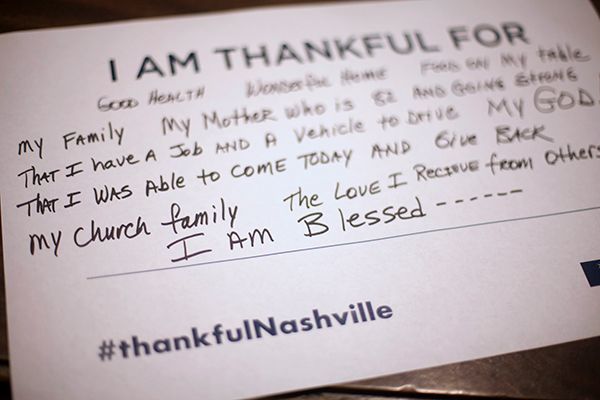 I AM THANKFUL FOR
Good Health Wonderful Home Food on My table
My Family My Mother who is 82 AND GOING STRONG
THAT I have A Job AND A Vehicle to Drive My GOD!
THAT I WAS Able to COME TODAY AND Give BACK
My Church family The LOVE I Recieve from Others
I AM Blessed ------
#thankfulNashville